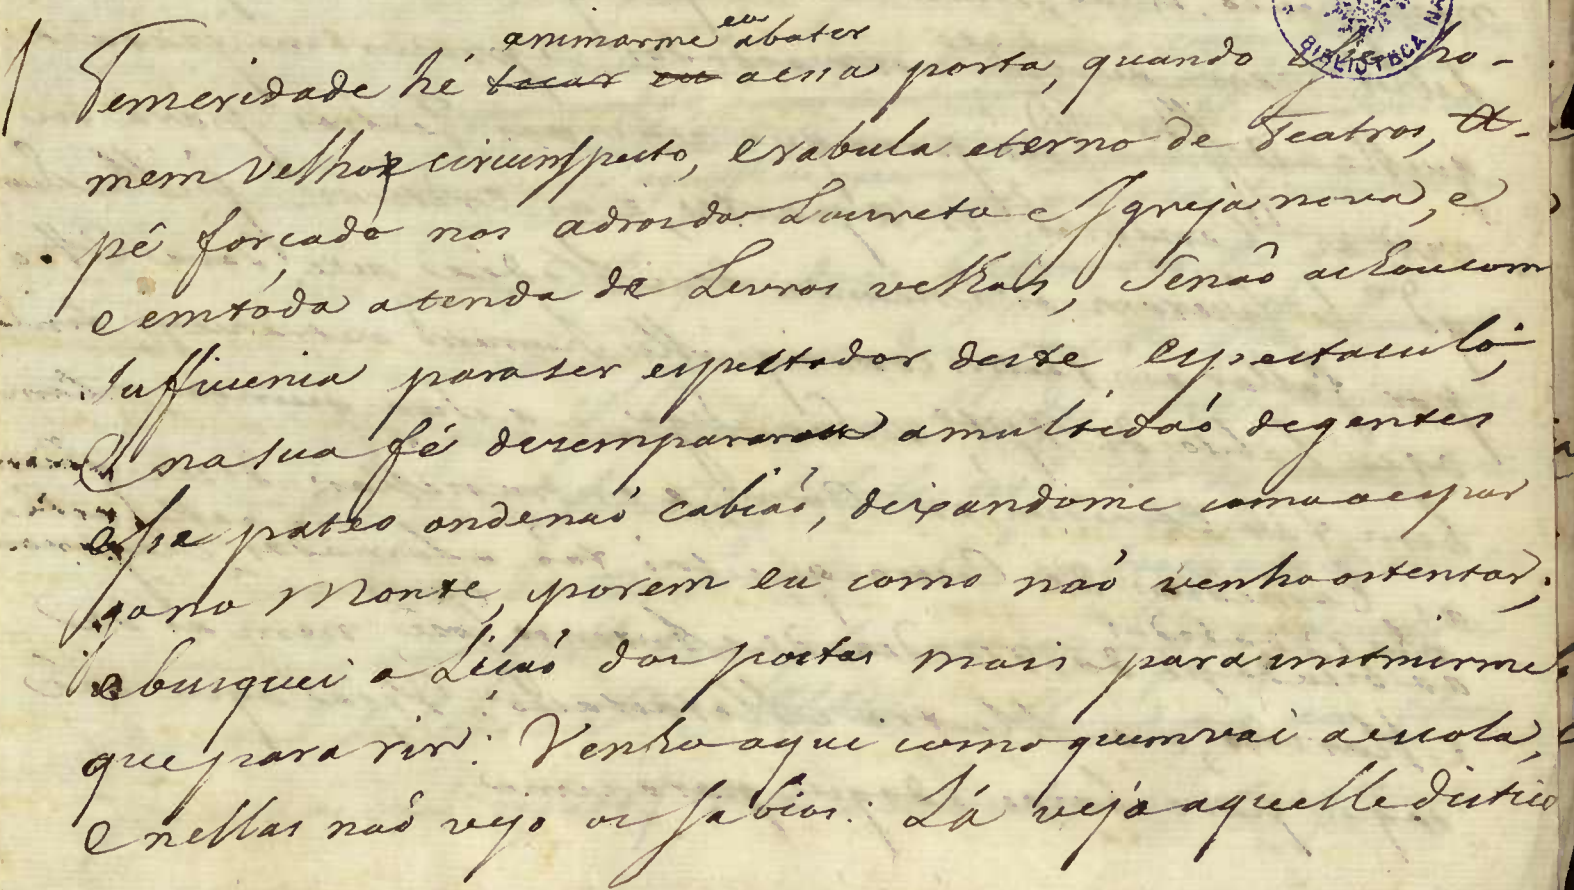 animarme eu abater
Temeridade hé tocar eu aessa porta, quando hu ho-
mem velho, e circunspecto, erabula eterno de Teatros, &
pê forcado nos adros do Loureto e Igreja nova, e
e em tôda atenda de Livros velhos, senaõ achou com
sufficiencia para ser espectador deste espectaculo,
e na sua fé desemparar amultidaó de gentes
esse pateo onde naó cabiaó, deixandome como a espar
gono Monte, porem eu como naó venho ostentar,
e busquei a Licaó dos poetas mais para instruirme
que para rir: Venho aqui como quem vai a escola,
e nellas naõ vejo os sabios: Lá vejo aquelle distico
BIBLIOTECA NA